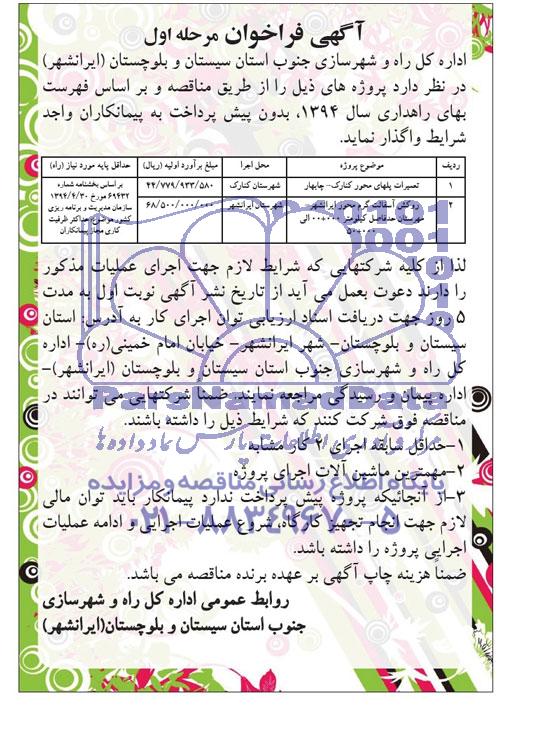 آگهی فراخوان مرحله اول
اداره کل راه و شهرسازی جنوب استان سیستان و بلوچستان (ایرانشهر)
در نظر دارد پروژه های ذیل را از طریق مناقصه و بر اساس فهرست
بهای راهداری سال ۱۳۹۴، بدون پیش پرداخت به پیمانکاران واجد
شرایط واگذار نماید.
ردیف موضوع پروژه محل اجرا مبلغ برآورد اولیه (ریال) حداقل پایه مورد نیاز (راه)
۱ تعمیرات پلهای محور کنارک- چابهار شهرستان کنارک ۴۴/۷۷۹/۹۳۳/۵۸۰
۲ روکش آسفالت گرم محور ایرانشهر - مهرستان حدفاصل کیلومتر ۰۰۰+۰۰ الی شهرستان ایرانشهر ۶۸/۵۰۰/۰۰۰/۰۰۰
بر اساس بخشنامه شماره
۶۹۴۳۲ مورخ ۱۳۹۴/۴/۳۰
سازمان مدیریت و برنامه ریزی
کشور موضوع حداکثر ظرفیت
کاری مجاز پیمانکاران
لذا از کلیه شرکتهایی که شرایط لازم جهت اجرای عملیات مذکور
را دارند دعوت بعمل می آید از تاریخ نشر آگهی نوبت اول به مدت
۵ روز جهت دریافت اسناد ارزیابی توان اجرای کار به آدرس: استان
سیستان و بلوچستان- شهر ایرانشهر- خیابان امام خمینی(ره)- اداره
کل راه و شهرسازی جنوب استان سیستان و بلوچستان (ایرانشهر)-
اداره پیمان و رسیدگی مراجعه نمایند. ضمنا شرکتهایی می توانند در
مناقصه فوق شرکت کنند که شرایط ذیل را داشته باشند.
۱-حداقل سابقه اجرای ۲ کار مشابه
۲-مهمترین ماشین آلات اجرای پروژه
۳-از آنجائیکه پروژه پیش پرداخت ندارد پیمانکار باید توان مالی
لازم جهت انجام تجهیز کارگاه، شروع عملیات اجرایی و ادامه عملیات
اجرایی پروژه را داشته باشد.
ضمناً هزینه چاپ آگهی بر عهده برنده مناقصه می باشد.
روابط عمومی اداره کل راه و شهرسازی
جنوب استان سیستان و بلوچستان(ایرانشهر)
ParsNamadData
پایگاه اطلاع رسانی مناقصه و مزایده
۰۲۱-۸۸۳۴۹۶۷۰-۵